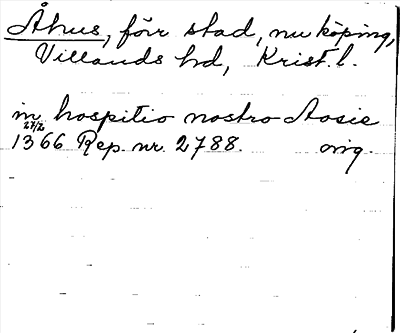 Åhus, förr stad, nu köping,
Villands hd, Krist. l.
in hospitio nostro Aosie
27/2
1366 Rep. nr. 2788. orig.